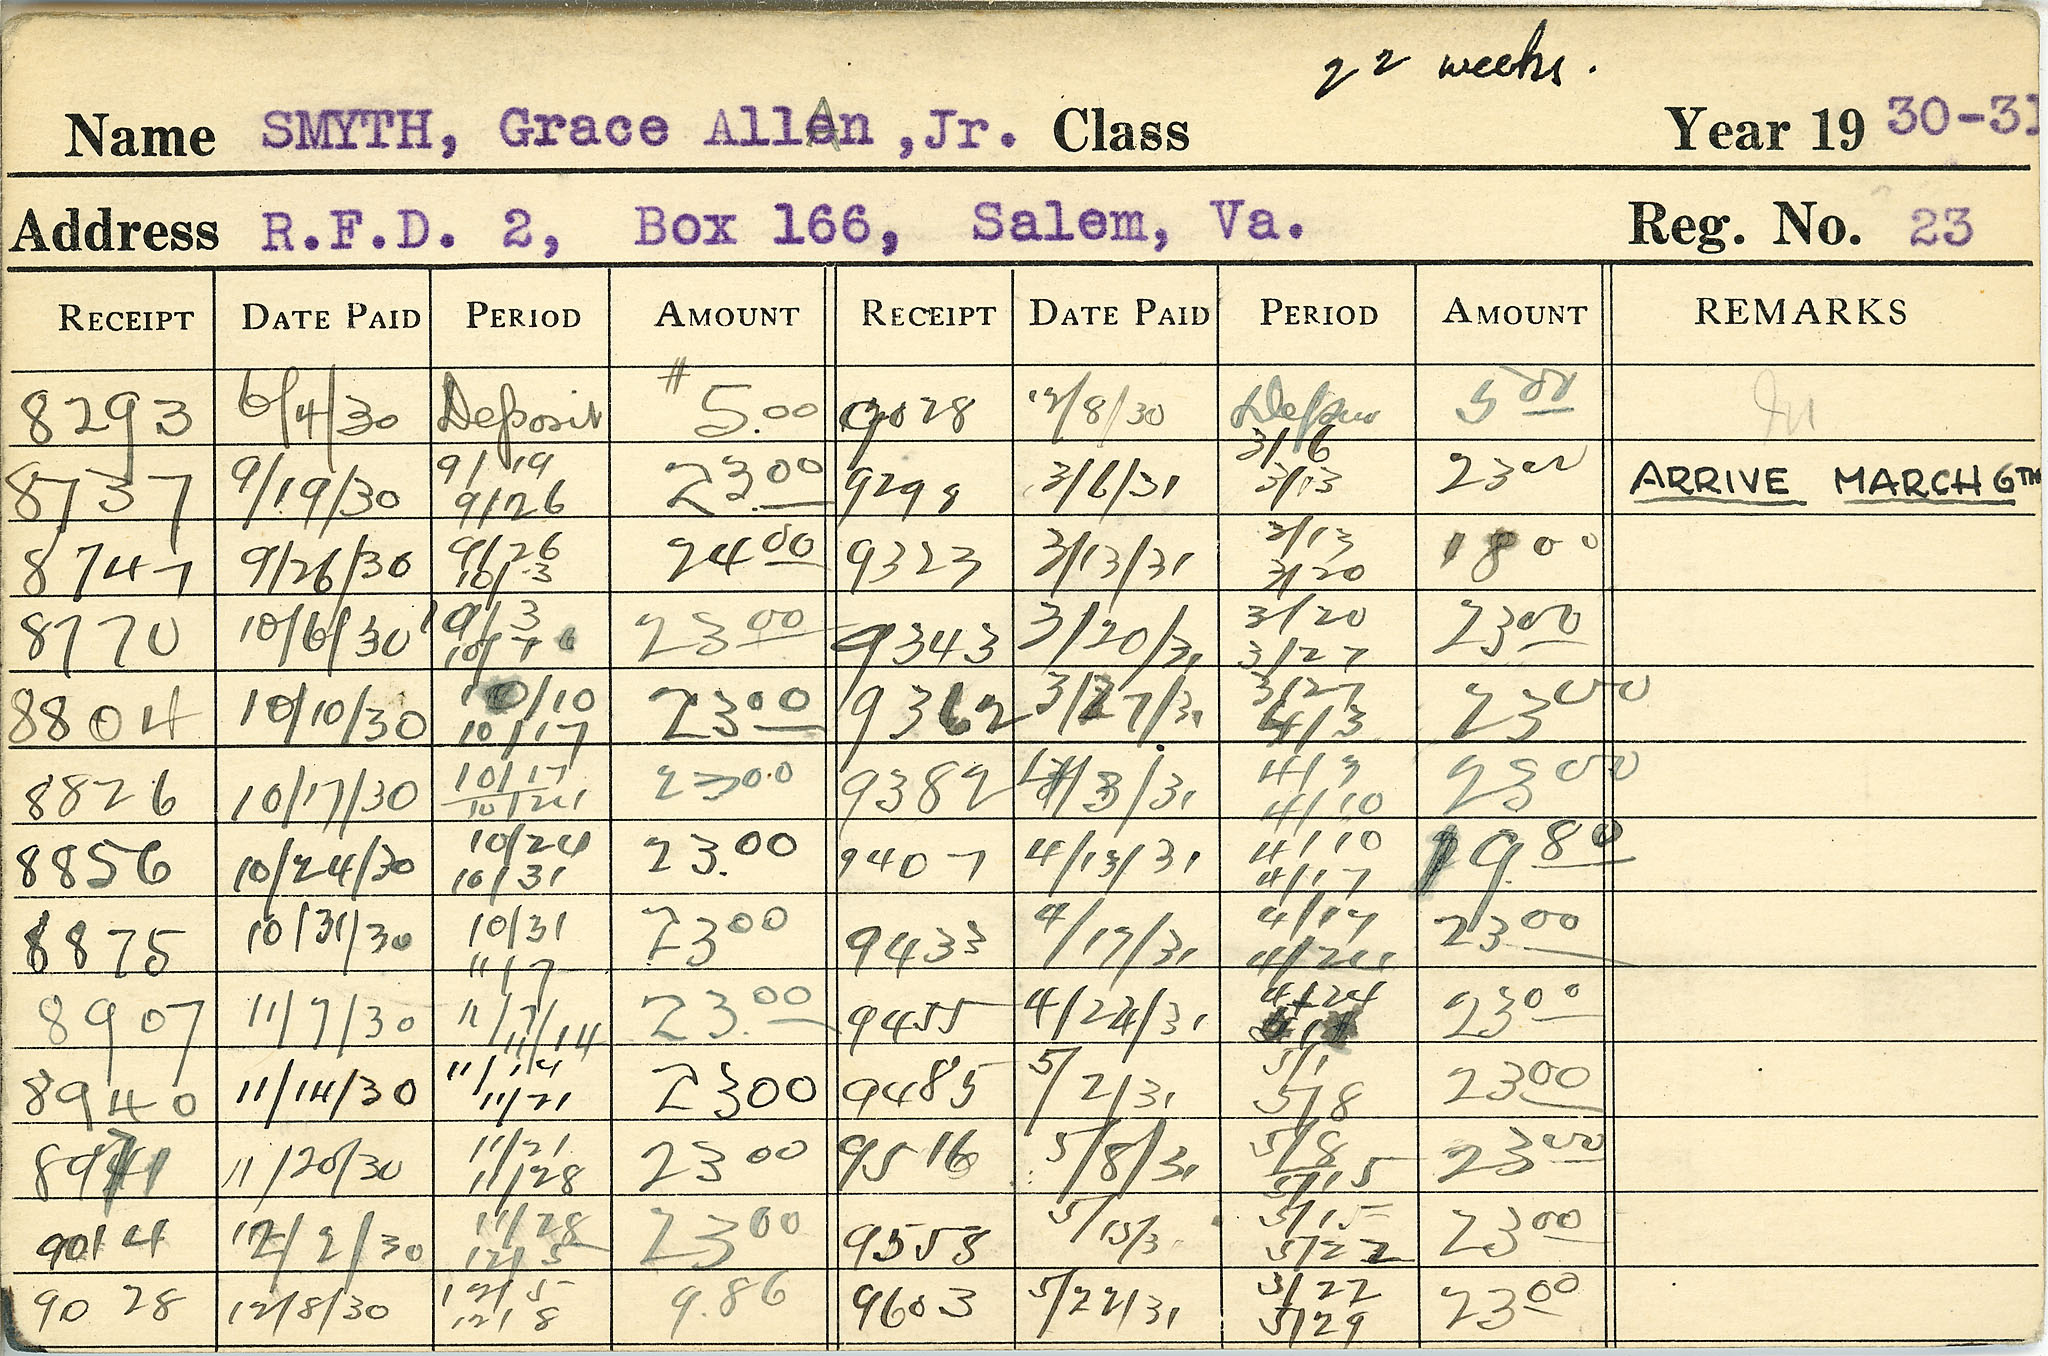 22 weeks.
Name SMYTH, Grace AllAn ,Jr. Class Year 19 30-31
Address R.F.D. 2, Box 166, Salem, Va. Reg. No. 23
RECEIPT DATE PAID PERIOD AMOUNT RECEIPT DATE PAID PERIOD AMOUNT REMARKS
8293 6/4/30 Deposit $5.00 9028 12/8/30 5 00
8737 9/19/30 9/19 9/26 23.00 9298 3/6/31 3/6 3/13 23 00 ARRIVE MARCH 6TH
8747 9/26/30 9/26 10/3 24 00 9323 3/13/31 3/13 3/20 18 00
8770 10/6/30 23 00 9343 3/20/31 3/20 3/27 23 00
8804 10/10/30 10/10 10/17 23 00 9362 3/27/31 3/27 4/3 23 00
8826 10/17/30 10/17 10/24 23 00 9382 4/3/31 4/3 4/10 23 00
8856 10/24/30 10/24 10/31 23.00 9407 4/13/31 4/10 4/17 19.80
8875 10/31/30 10/31 11/7 23 00 9433 4/17/31 4/17 4/24 23 00
8907 11/7/30 11/7/11/14 23.00 9455 4/24/31 4/24 23 00
8940 11/14/30 11/14 11/21 23 00 9485 5/2/31 5/1 5/8 23 00
11/20/30 11/21 11/28 23 00 9516 5/8/31 5/8 5/15 23 00
9014 12/2/30 11/28 12/5 23 00 9558 5/15/3 5/15 5/22 23 00
9028 12/8/30 12/5 12/8 9.86 9603 5/22/31 5/22 5/29 23 00